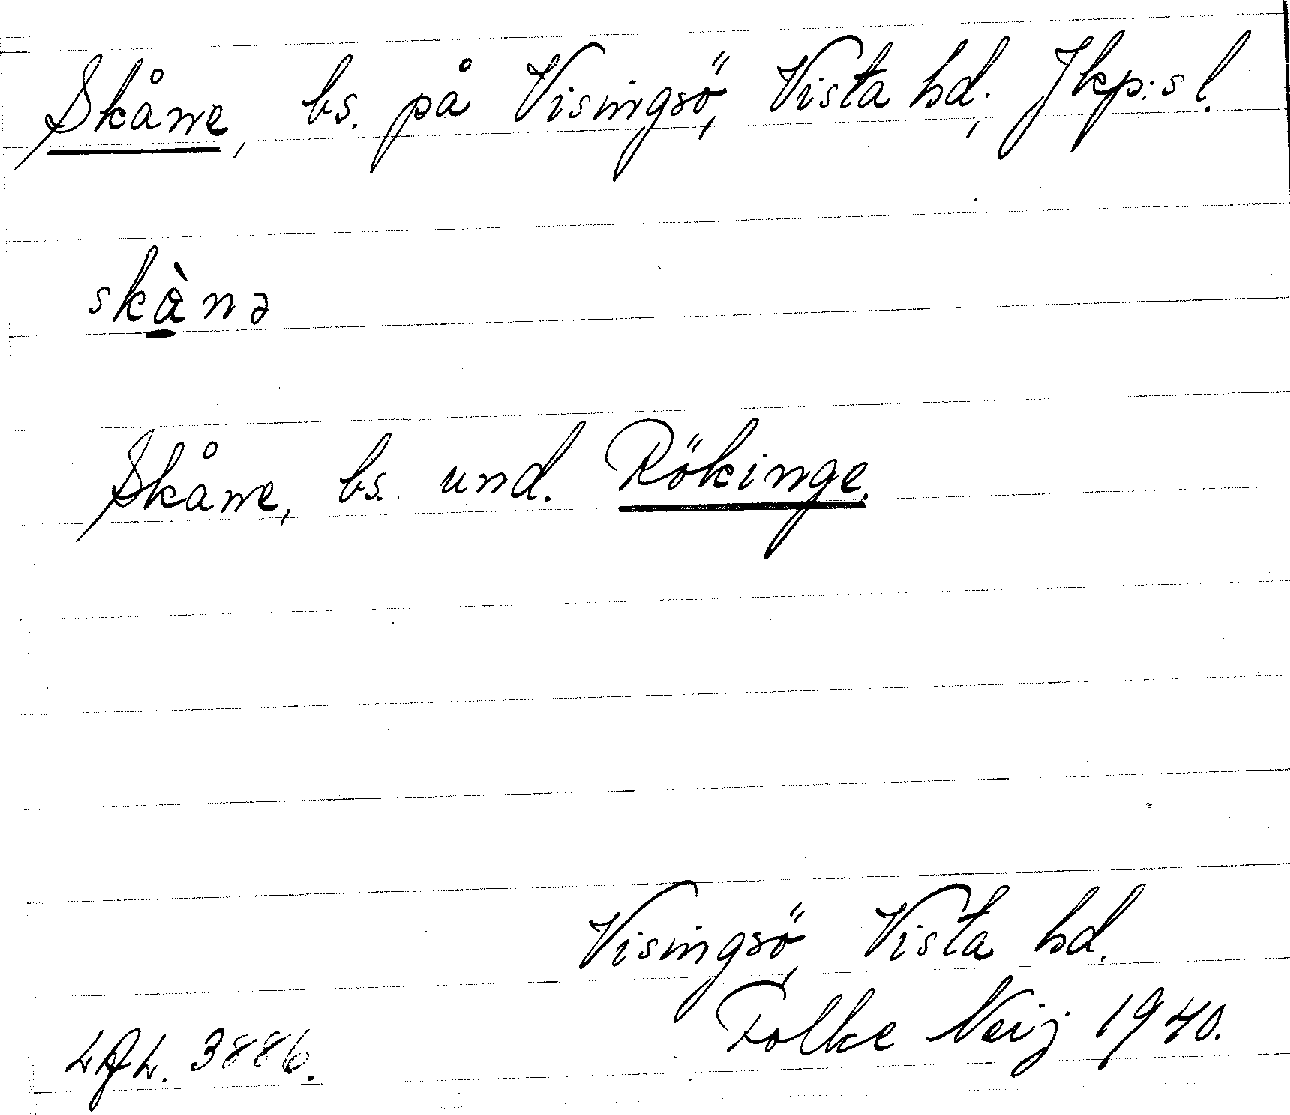 Skåne, bs. på Visingsö, Vista hd, Jkp:s l.
skà̱nə
Skåne, bs. und. Rökinge.
Visingsö, Vista hd.
Folke Neij 1940.
3886.